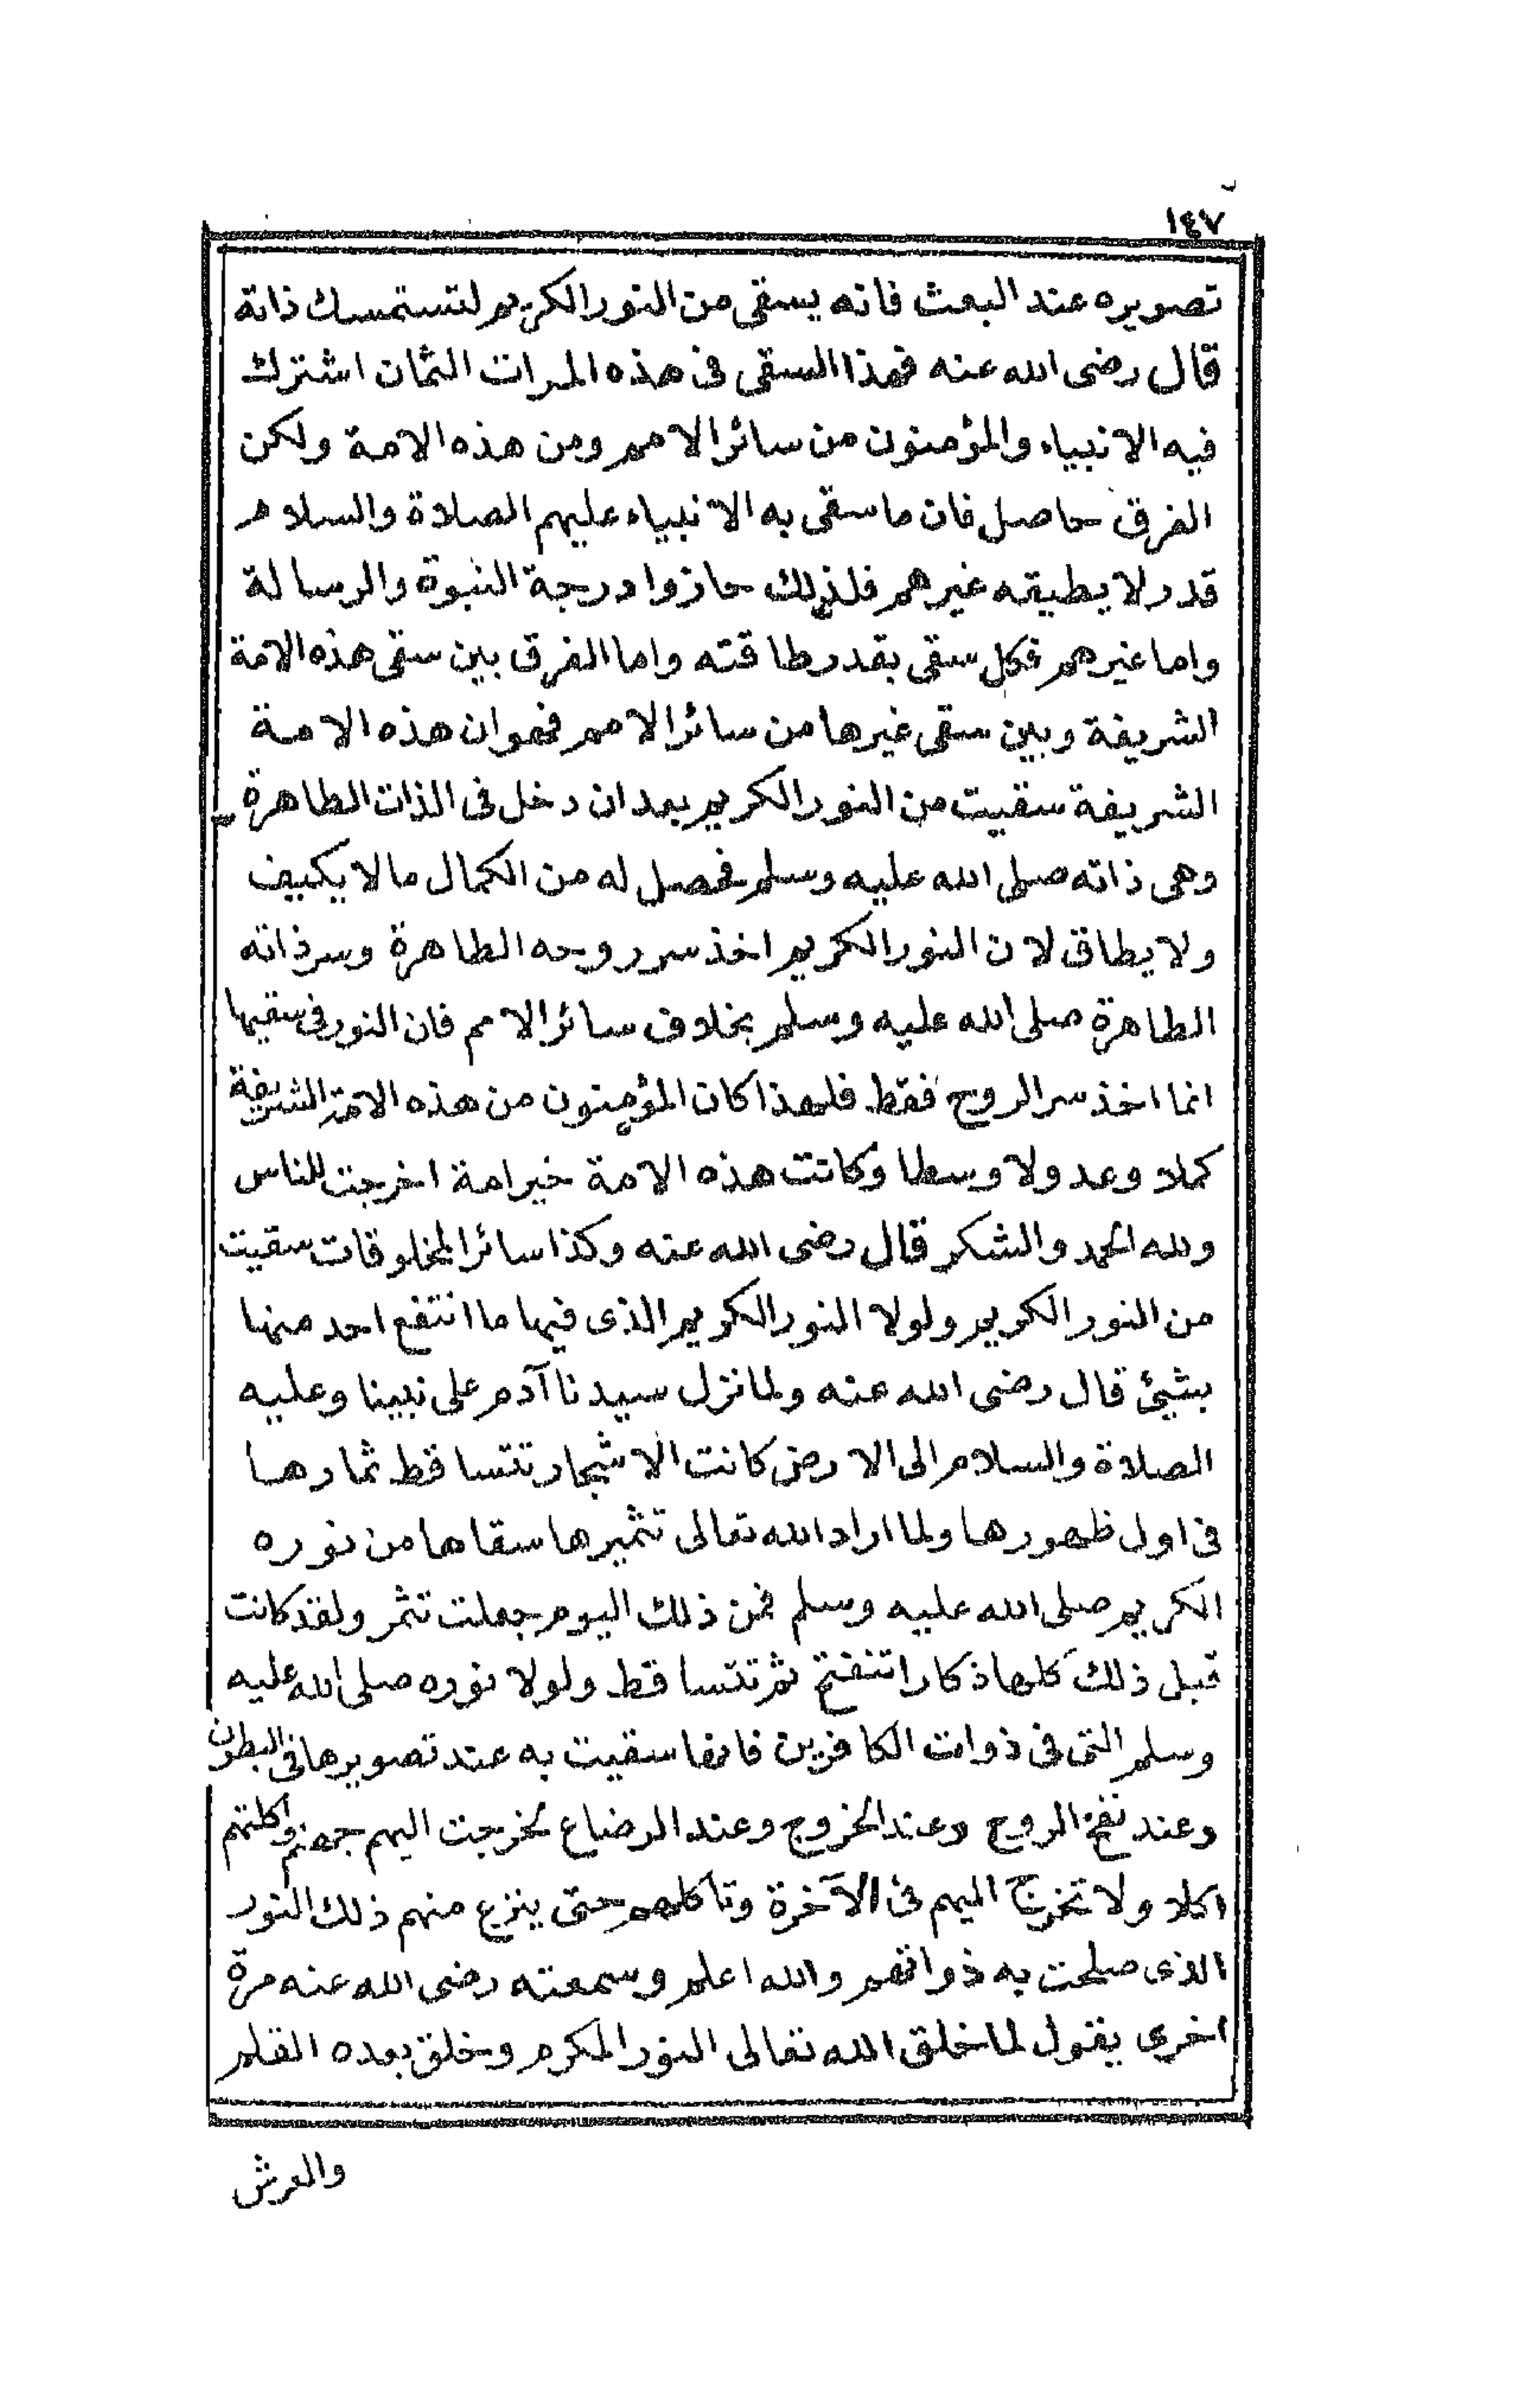 ١٤٧
تصويره عند البعث فانه يسقى من النور الكريم لتستمسك ذاته
قال رضى الله عنه فهذا السقى فى هذه المرات الثمان اشترك
فيه الانبياء والمؤمنون من سائر الامم ومن هذه الامة ولكن
الفرق حاصل فان ما سقى به الانبياء عليهم الصلاة والسلام
قدر لا يطيقه غيرهم فلذلك حازوا درجة النبوة والرسالة
واما غيرهم فكل سقى بقدر طاقته واما الفرق بين سقى هذه الامة
الشريفة وبين سقى غيرها من سائر الامم فهو ان هذه الامة
الشريفة سقيت من النور الكريم بعد ان دخل فى الذات الطاهرة
وهى ذاته صلى الله عليه وسلم فحصل له من الكمال ما لا يكيف
ولا يطاق لان النور الكريم اخذ سر روحه الطاهرة وسر ذاته
الطاهرة صلى الله عليه وسلم بخلاف سائر الامم فان النور فى سقيها
انما اخذ سر الروح فقط فلهذا كان المؤمنون من هذه الامة الشريفة
كملا وعدولا وسطا وكانت هذه الامة خير امة اخرجت للناس
ولله الحمد والشكر قال رضى الله عنه وكذا سائر المخلوقات سقيت
من النور الكريم ولولا النور الكريم الذى فيها ما انتفع احد منها
بشيئ قال رضى الله عنه ولما نزل سيدنا آدم على نبينا وعليه
الصلاة والسلام الى الارض كانت الاشجار تتساقط ثمارها
فى اول ظهورها ولما اراد الله تعالى تثميرها سقاها من نوره
الكريم صلى الله عليه وسلم فمن ذلك اليوم جعلت تثمر ولقد كانت
قبل ذلك كلها ذكارا تنفتح ثم تتساقط ولولا نوره صلى الله عليه
وسلم التى فى ذوات الكافرين فانها سقيت به عند تصويرها فى البطون
وعند نفخ الروح وعند الخروج وعند الرضاع لخرجت اليهم جهنم واكلتهم
اكلا ولا تخرج اليهم فى الآخرة وتاكلهم حتى ينزع منهم ذلك النور
الذى صلحت به ذواتهم والله اعلم وسمعته رضى الله عنه مرة
اخرى يقول لما خلق الله تعالى النور المكرم وخلق بعده القلم
والعرش